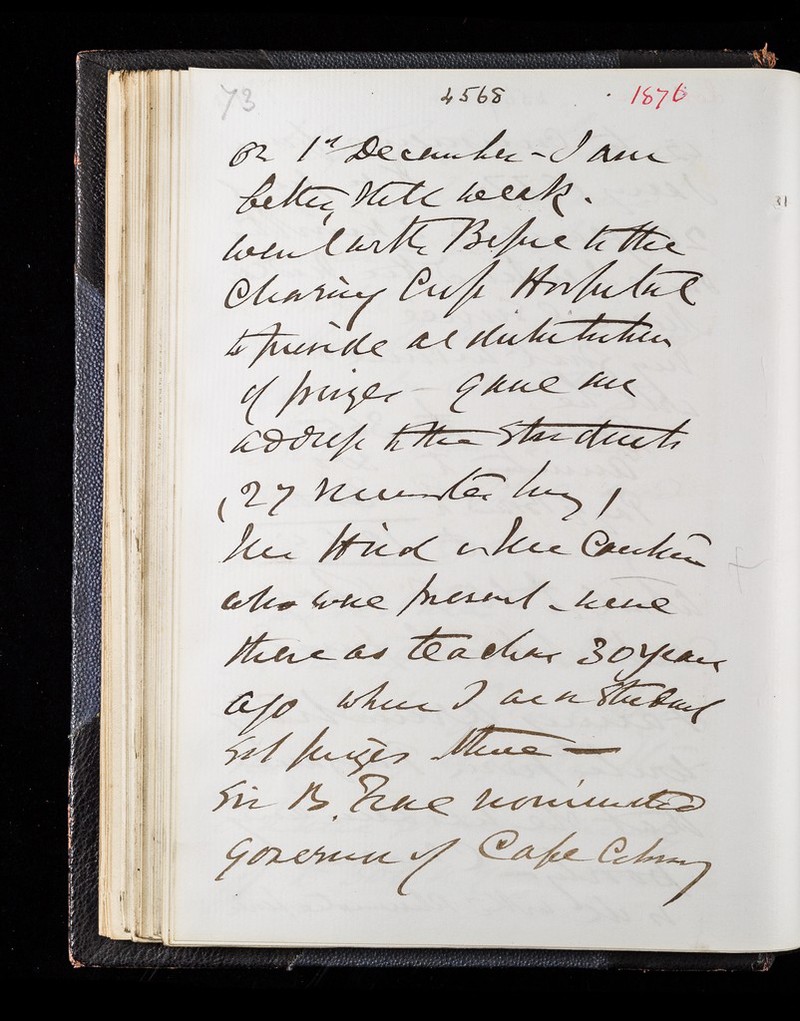 73 4568 1876
on 1st December - I am
better, still weak.
went with Before to the
Charing Cross Hospital
to preside at distribution
of prizes - gave an
address to the Students
(27 November
Mr Hird & Mr
who were present - were
there as teachers 30 years
ago when I as a student
got prizes there —
Sir B. Frere nominated
Governor of Cape Colony